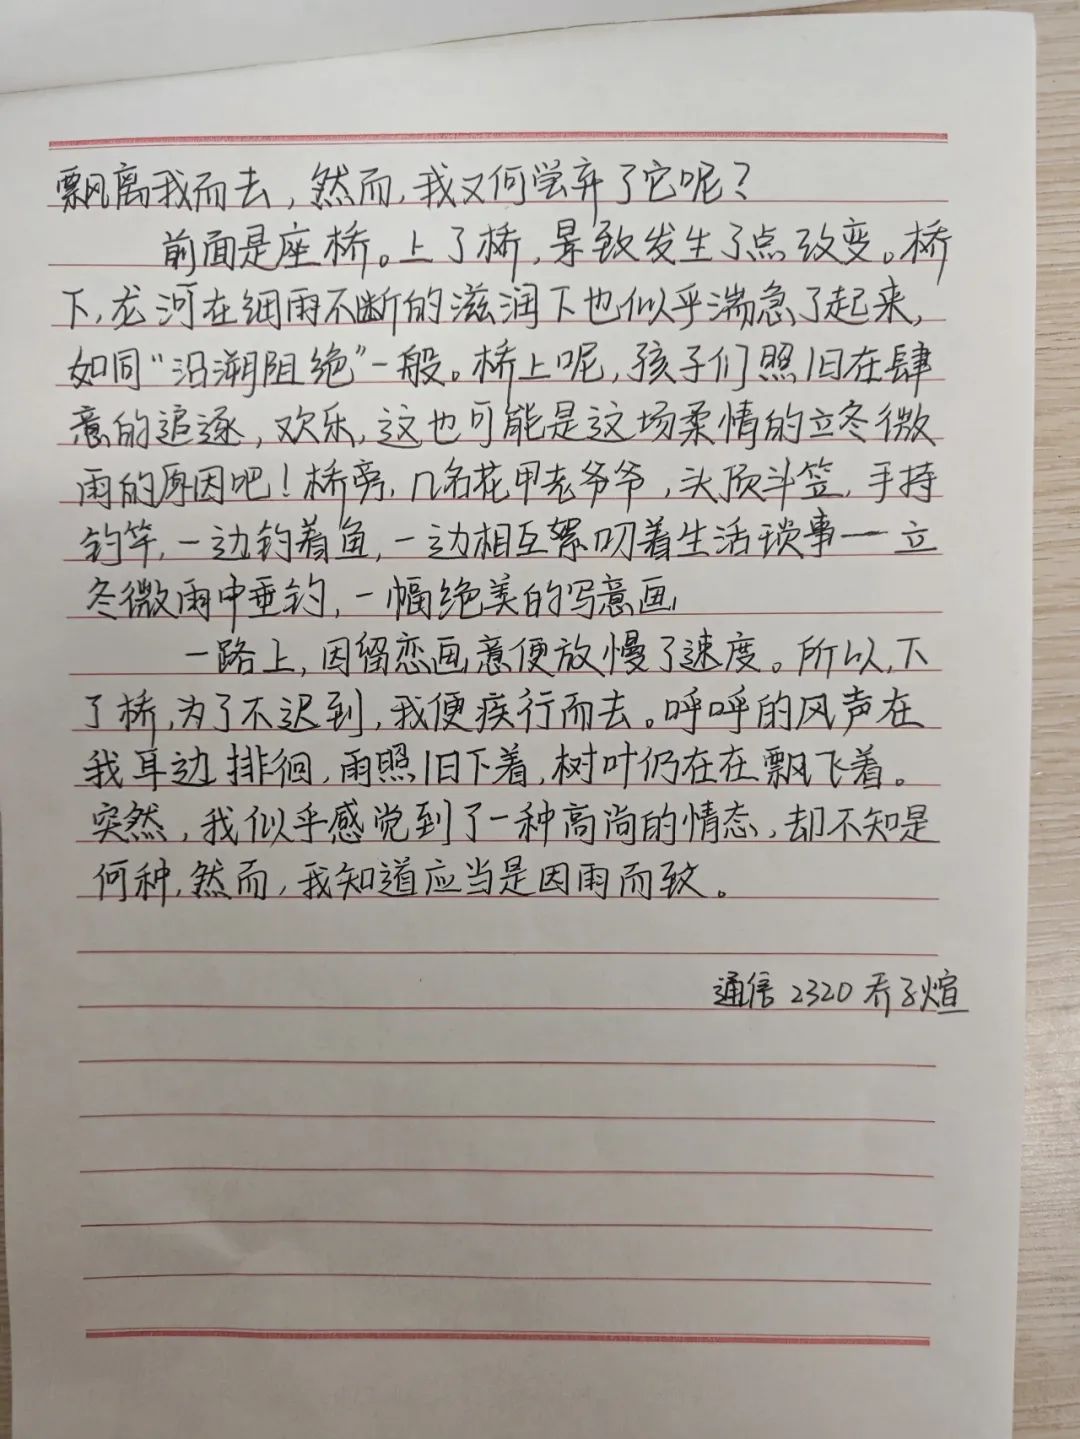 飘离我而去，然而，我又何尝弃了它呢？
前面是座桥。上了桥，景致发生了点改变。桥
下，龙河在细雨不断的滋润下也似乎湍急了起来，
如同“沿溯阻绝”一般。桥上呢，孩子们照旧在肆
意的追逐，欢乐，这也可能是这场柔情的立冬微
雨的原因吧！桥旁，几名花甲老爷爷，头顶斗笠，手持
钓竿，一边钓着鱼，一边相互絮叨着生活琐事——立
冬微雨中垂钓，一幅绝美的写意画！
一路上，因留恋画意便放慢了速度。所以，下
了桥，为了不迟到，我便疾行而去。呼呼的风声在
我耳边排徊，雨照旧下着，树叶仍在在飘飞着。
突然，我似乎感觉到了一种高尚的情态，却不知是
何种，然而，我知道应当是因雨而致。
通信 2320 乔子煊